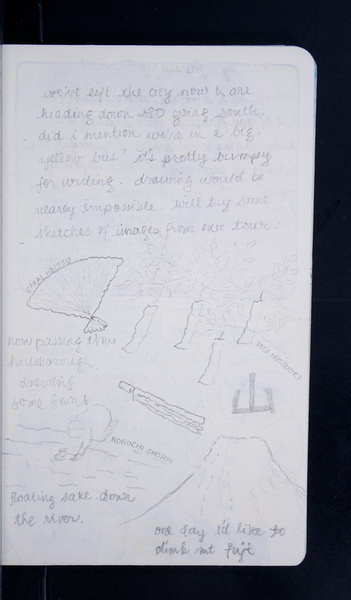 we've left the city now & are
heading down 280 going south.
did i mention we're in a big,
yellow bus? it's pretty bumpy
for writing. drawing would be
nearly impossible. will try some
sketches of images from our tour.
now passing thru
hillsborough.
drawing
some fans
NOGUCHI SHOHIN
山
floating sake down
the river.
one day i'd like to
climb mt fuji